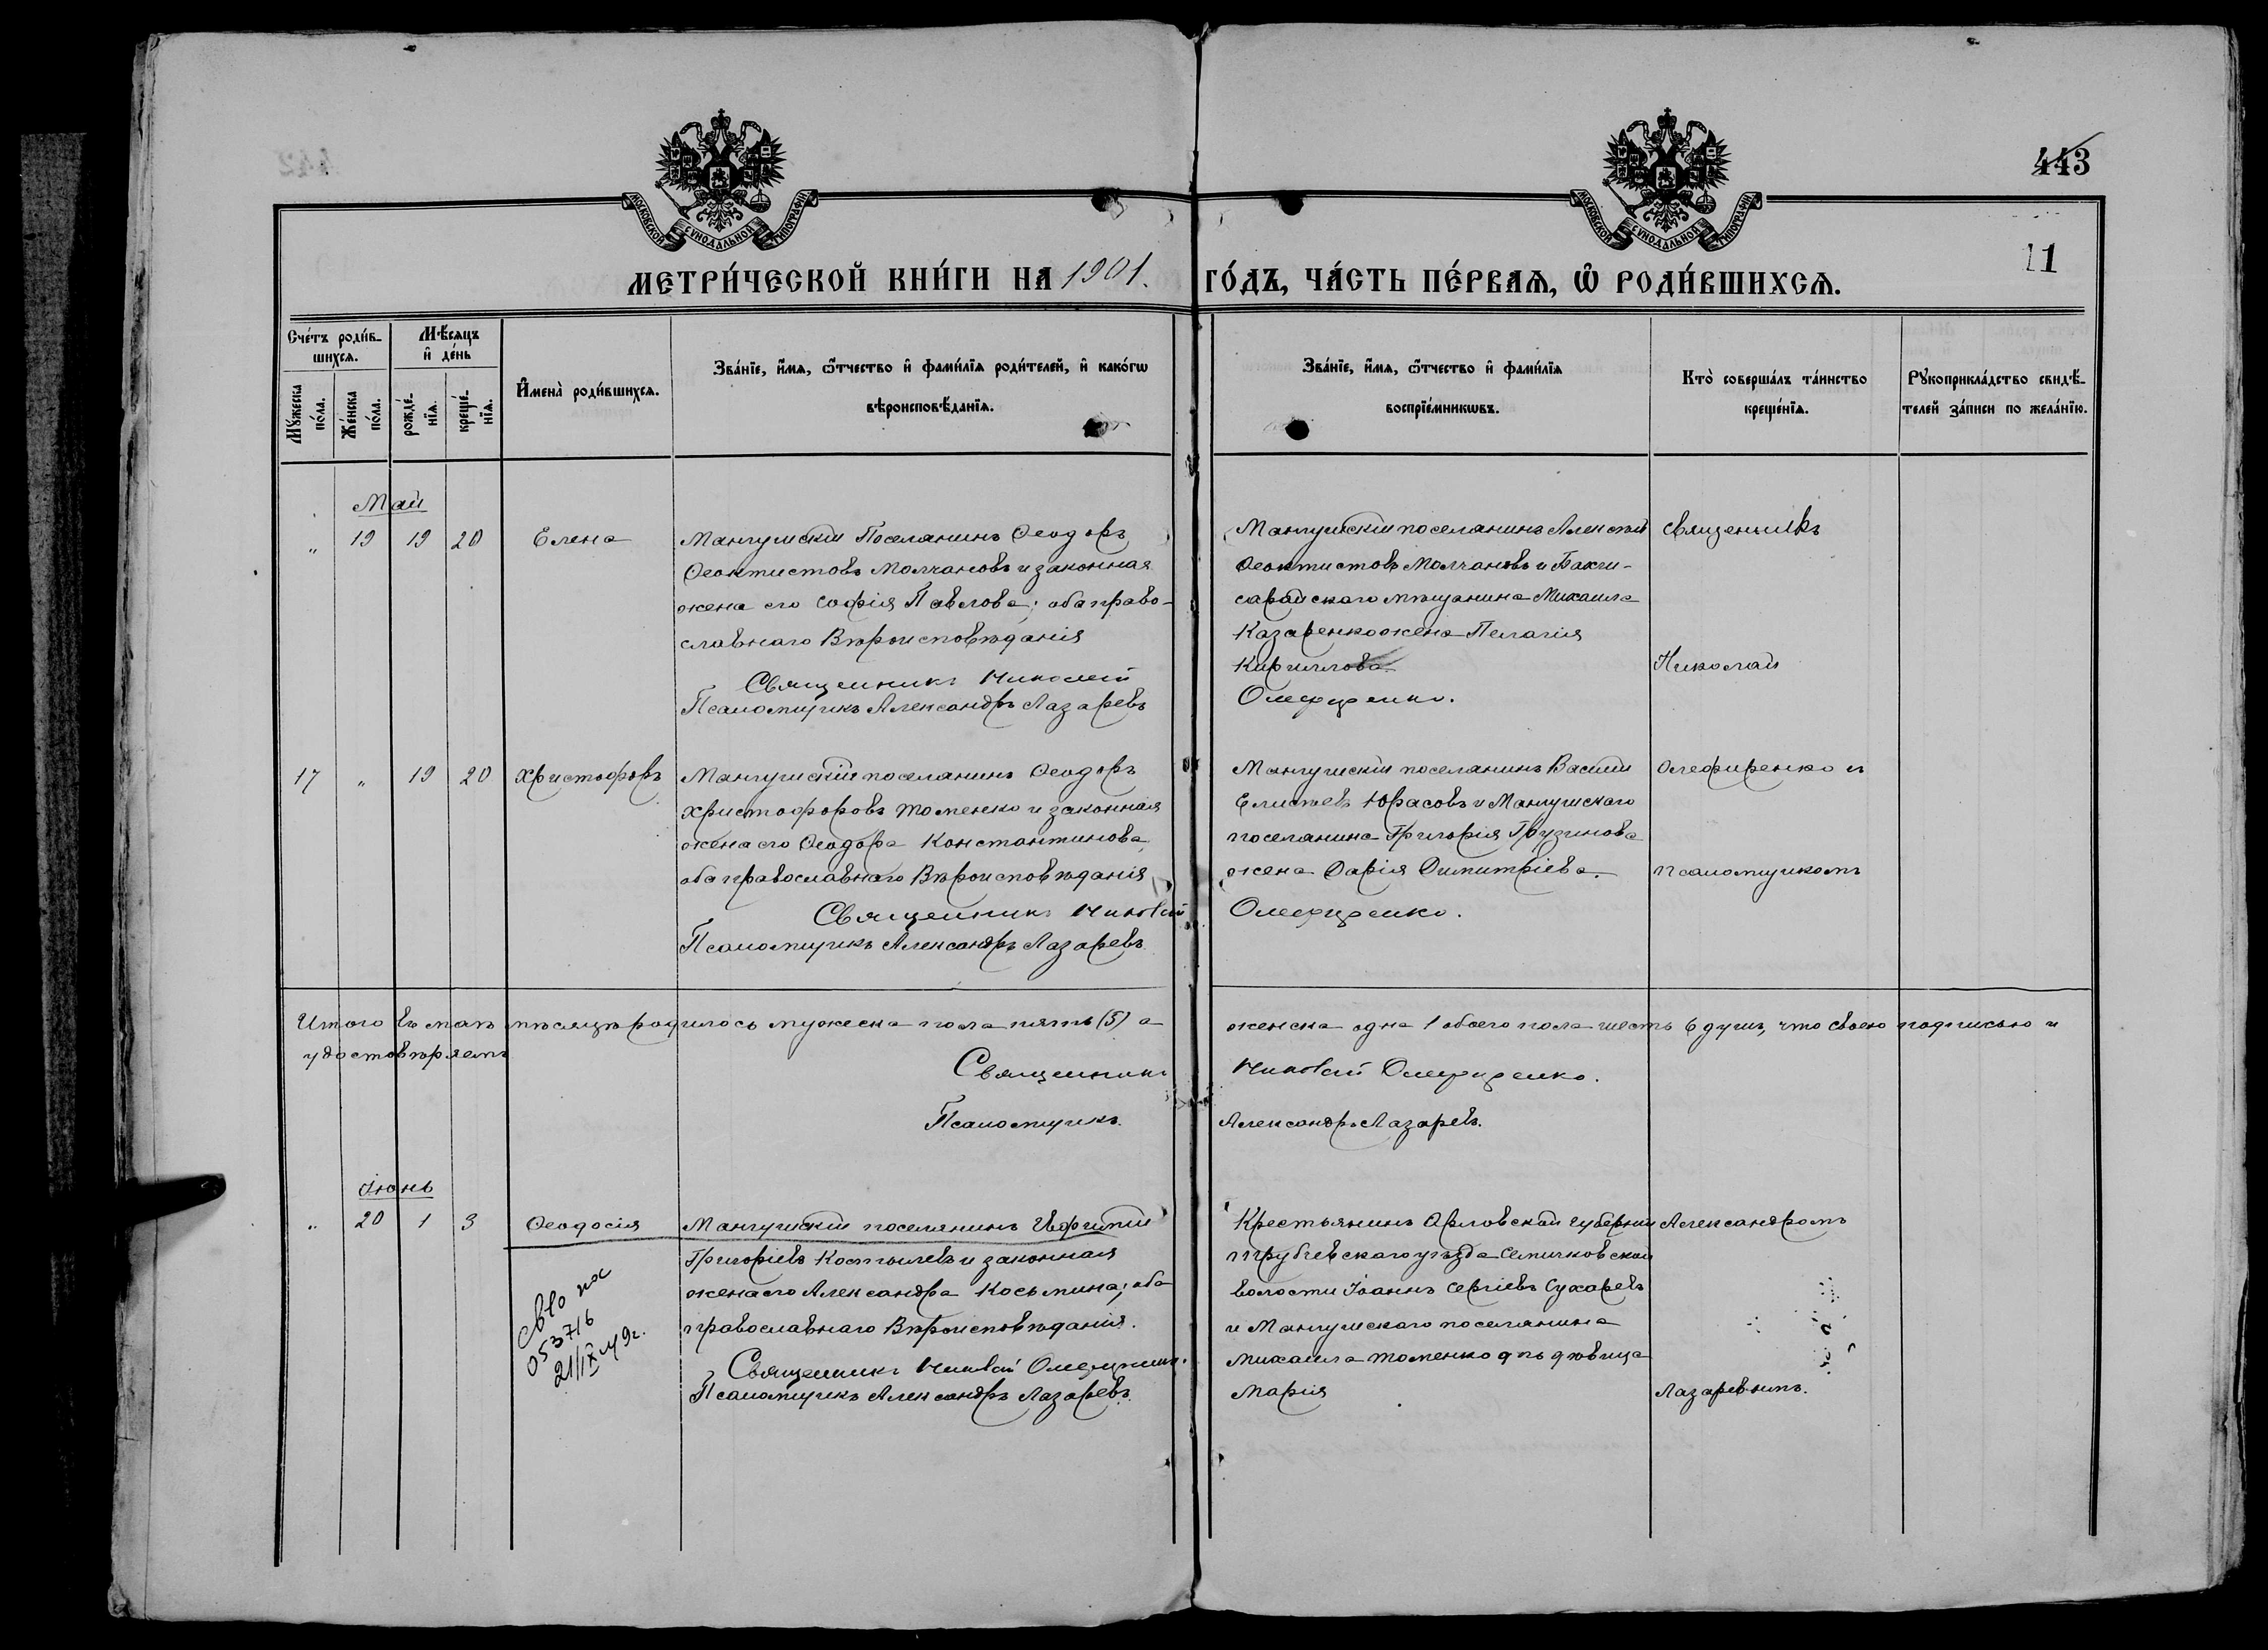 443
11
МОСКОВСКОЙ СѴНОДАЛЬНОЙ ТИПОГРАФІИ
МОСКОВСКОЙ СѴНОДАЛЬНОЙ ТИПОГРАФІИ
МЕТРИ́ЧЕСКОЙ КНИ́ГИ НА 1901. ГО́ДЪ, ЧА́СТЬ ПЕ́РВАѦ, Ѡ҆ РОДИ́ВШИХСѦ.
Сче́тъ роди́в-
шихсѧ.
Мꙋ́жеска по́ла.
Же́нска по́ла.
Мѣ́сѧцъ
и҆ де́нь
рожде́-нїѧ.
креще́-нїѧ.
И҆мена̀ роди́вшихсѧ.
Зва́нїе, и҆́мѧ, ѻ҆́тчество и҆ фами́лїѧ роди́телей, и҆ како́гѡ
вѣроисповѣ́данїѧ.
Зва́нїе, и҆́мѧ, ѻ҆́тчество и҆ фами́лїѧ
воспрїе́мникѡвъ.
Кто̀ соверша́лъ та́инство
креще́нїѧ.
Рꙋкоприкла́дство свидѣ́-
телей за́писи по жела́нїю.
Май
„ 19 19 20 Елена
Мангушскій Поселянинъ Ѳеодоръ
Ѳеоктистовъ Молчановъ и законная
жена его Софія Павлова; оба право-
славнаго Вѣроисповѣданія
Священникъ Николай
Псаломщикъ Александръ Лазаревъ
Мангушскій поселянинъ Алексѣй
Ѳеоктистовъ Молчановъ и Бахчи-
сарайскаго мѣщанина Михаила
Казаренко жена Пелагія
Кириллова
Олефиренко.
Священникъ
Николай
17 „ 19 20 Христофоръ
Мангушскій поселянинъ Ѳеодоръ
Христофоровъ Томенко и законная
жена его Ѳеодора Константинова,
оба православнаго Вѣроисповѣданія
Священникъ Николай
Псаломщикъ Александръ Лазаревъ
Мангушскій поселянинъ Василій
Елисѣевъ Юрасовъ и Мангушскаго
поселянина Григорія Грузинова
жена Дарія Димитріева.
Олефиренко.
Олефиренко и
псаломщикомъ
Итого въ маѣ мѣсяцѣ родилось мужеска пола пять (5) а женска одна 1 обоего пола шесть 6 душъ, что своею подписью и
удостовѣряемъ
Священникъ Николай Олефиренко.
Псаломщикъ Александръ Лазаревъ.
Іюнь
„ 20 1 3 Ѳеодосія
Мангушскій поселянинъ Евфимій
Григоріевъ Костылевъ и законная
жена его Александра Косьмина; оба
православнаго Вѣроисповѣданія.
Священникъ Николай Олефиренко.
Псаломщикъ Александръ Лазаревъ.
053716
Крестьянинъ Орловской губерніи
Трубчевскаго уѣзда Семячковской
волости Іоаннъ Сергіевъ Сухаревъ
и Мангушскаго поселянина
Михаила Томенко дѣвица
Марія
Александромъ
Лазаревымъ.